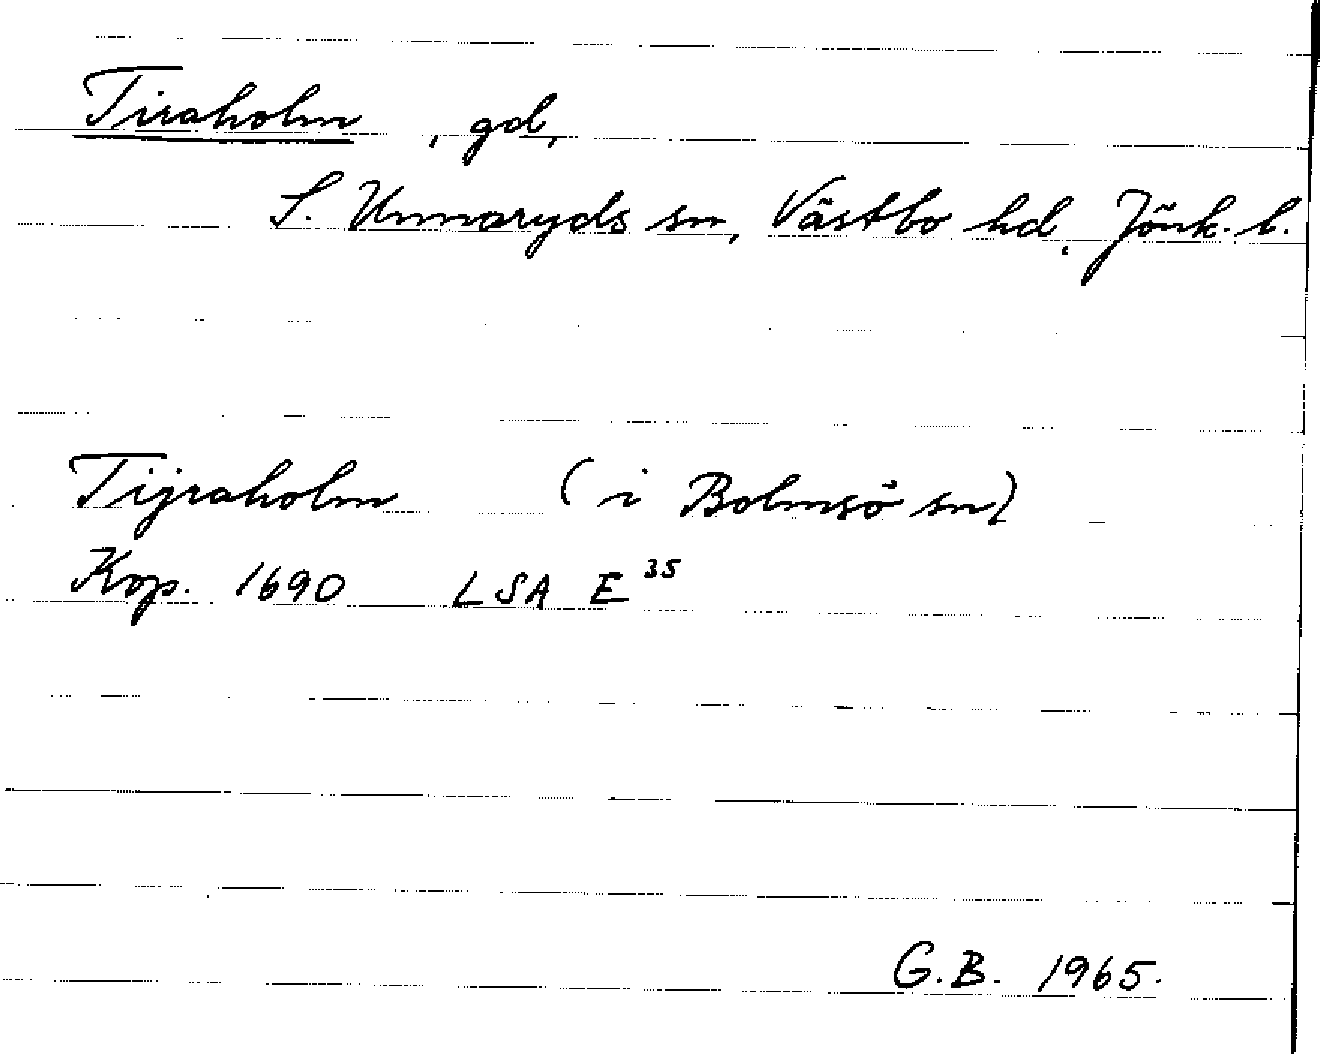 Tiraholm, gd,
S. Unnaryds sn, Västbo hd, Jönk. l.
Tijraholm (i Bolmsö sn)
Kop. 1690 LSA E 35
G.B. 1965.